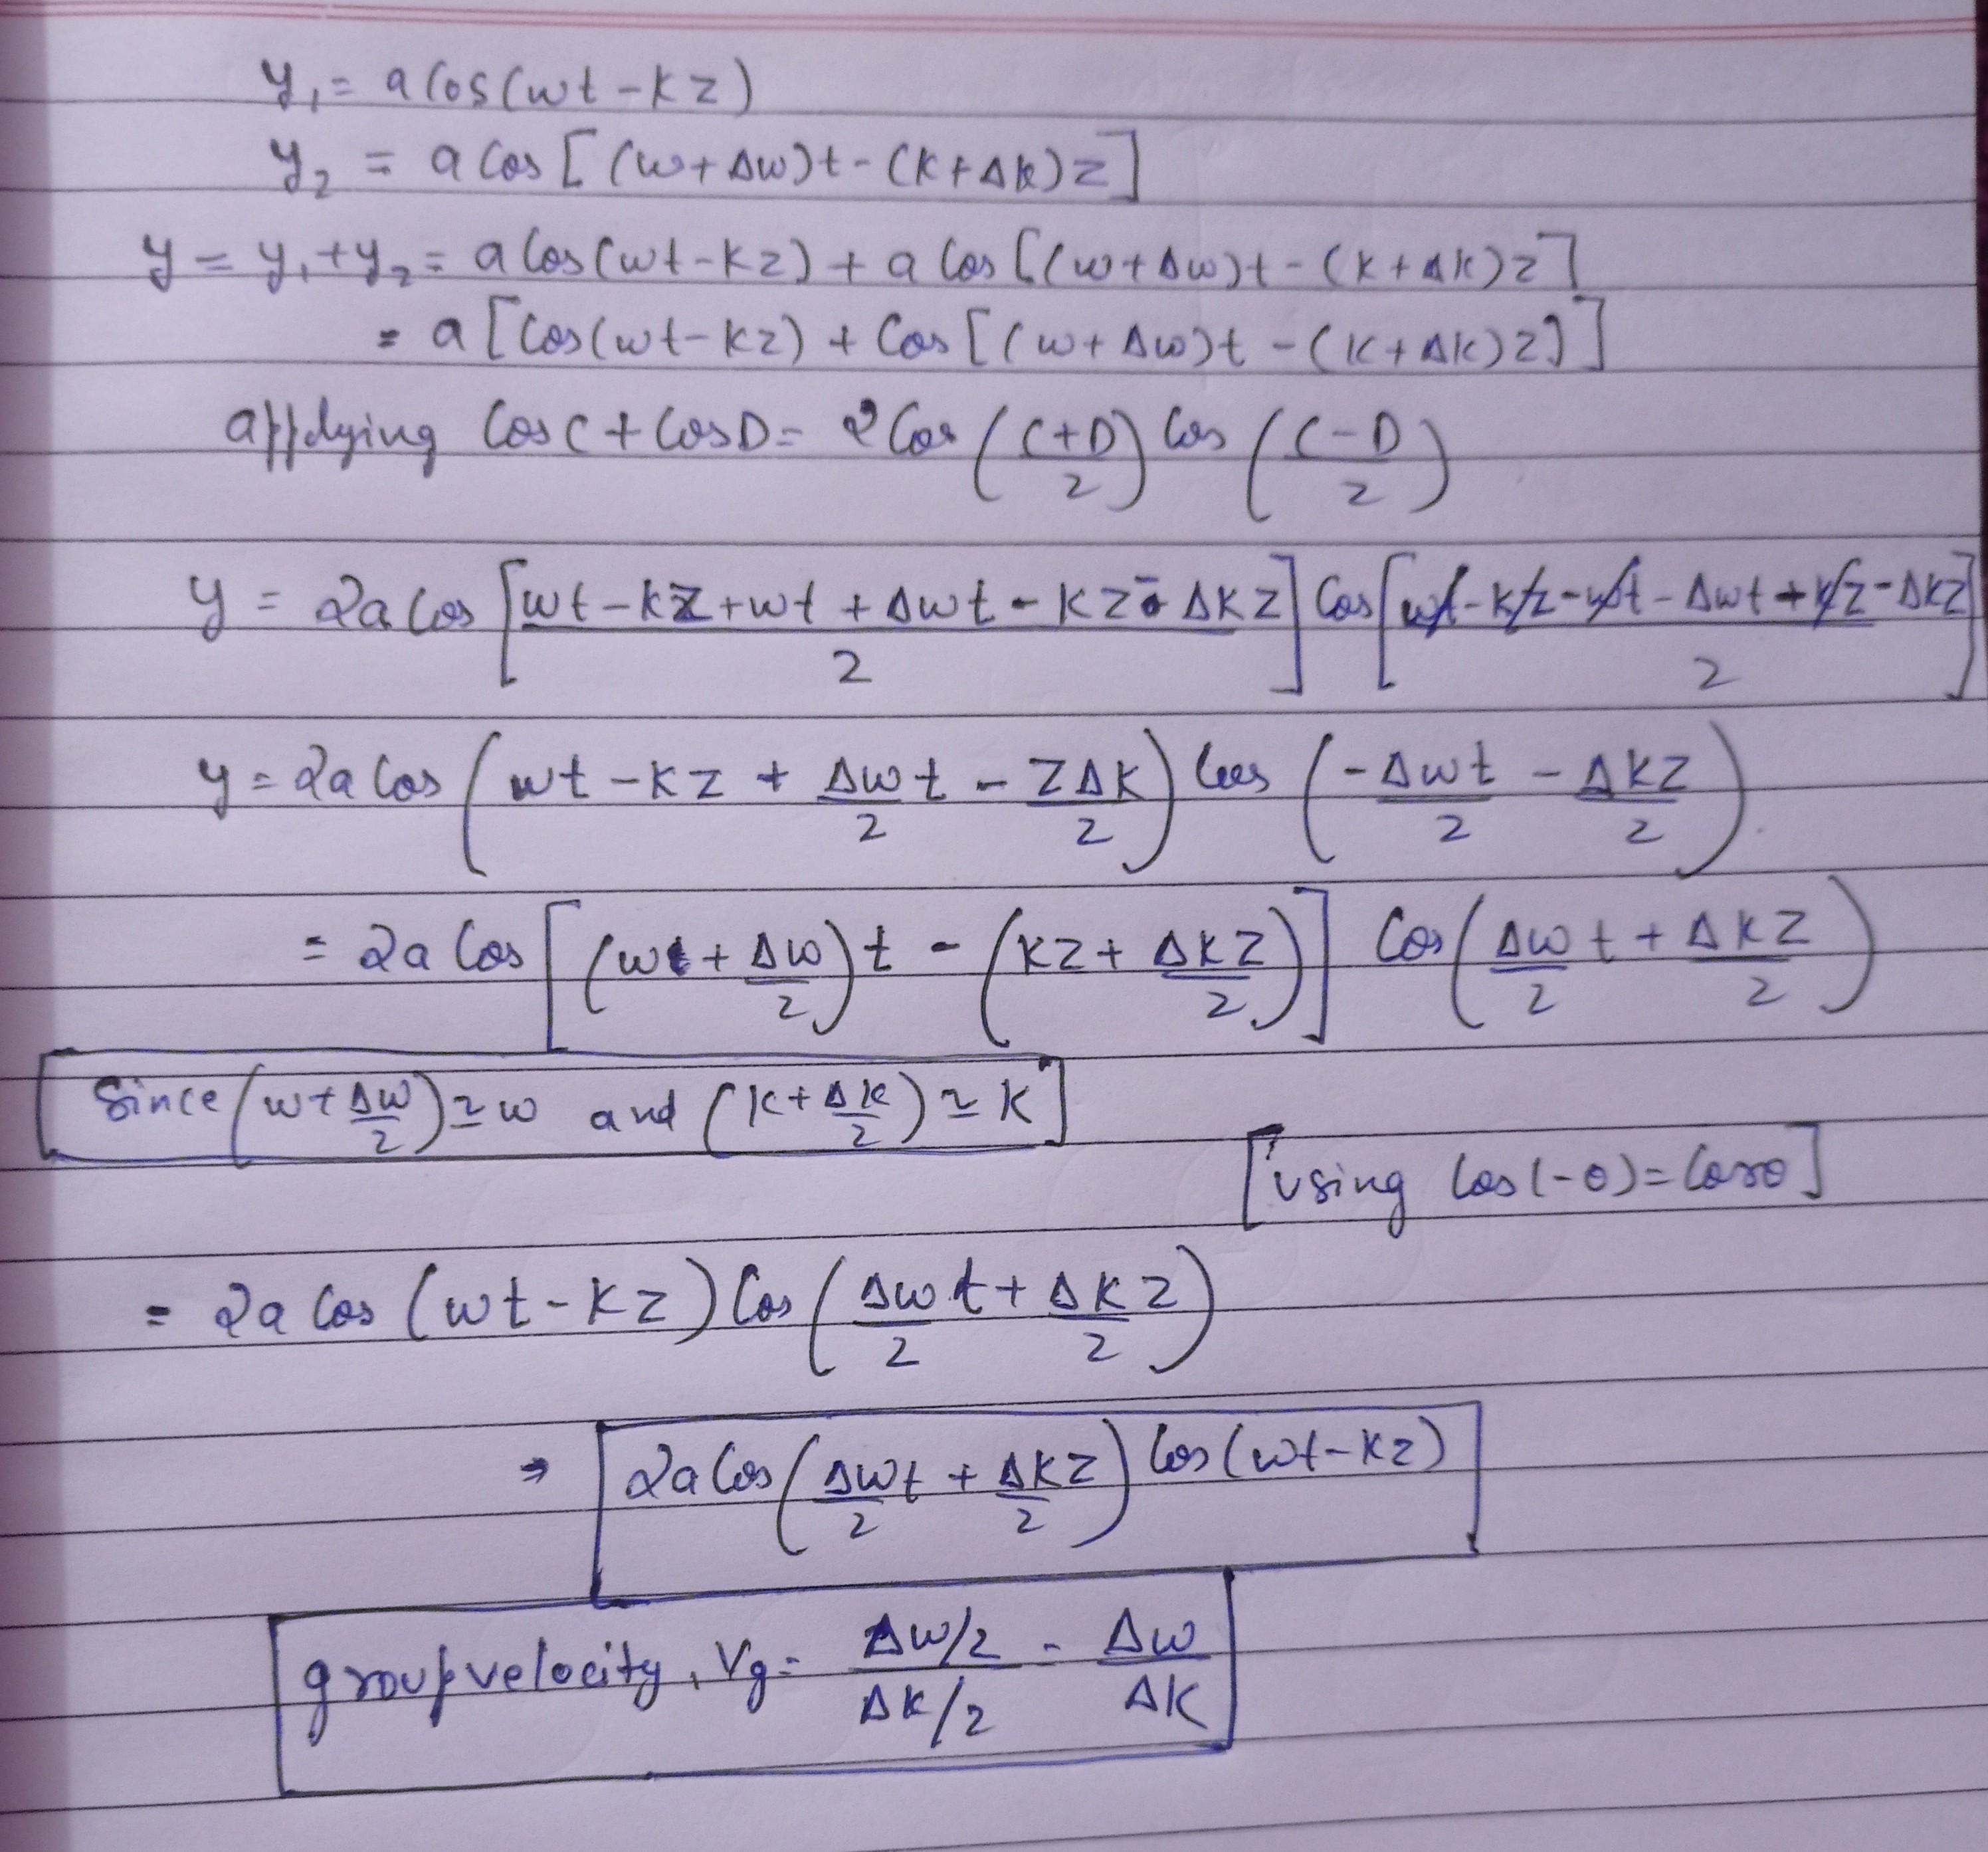 y₁ = a Cos(wt - kz)
y₂ = a Cos [(w+Δw)t - (k+Δk)z]
y = y₁+y₂ = a Cos(wt-kz) + a Cos [(w+Δw)t - (k+Δk)z]
= a [Cos(wt-kz) + Cos [(w+Δw)t - (k+Δk)z]]
applying Cos C + Cos D = 2 Cos ((C+D)/2) Cos ((C-D)/2)
y = 2a Cos [(wt-kz+wt+Δwt-kz-Δkz)/2] Cos [(wt-kz-wt-Δwt+kz-Δkz)/2]
y = 2a Cos (wt-kz + Δw/2 t - zΔk/2) Cos (-Δwt/2 - Δkz/2)
= 2a Cos [(w + Δw/2)t - (kz + Δkz/2)] Cos (Δw/2 t + Δkz/2)
[Since (w+Δw/2) ≃ w and (k+Δk/2) ≃ k]
[using Cos(-θ) = Cosθ]
= 2a Cos (wt-kz) Cos (Δw/2 t + Δk/2 z)
⇒ 2a Cos (Δw/2 t + Δk/2 z) Cos (wt-kz)
group velocity, Vg = (Δw/2)/(Δk/2) = Δw/Δk